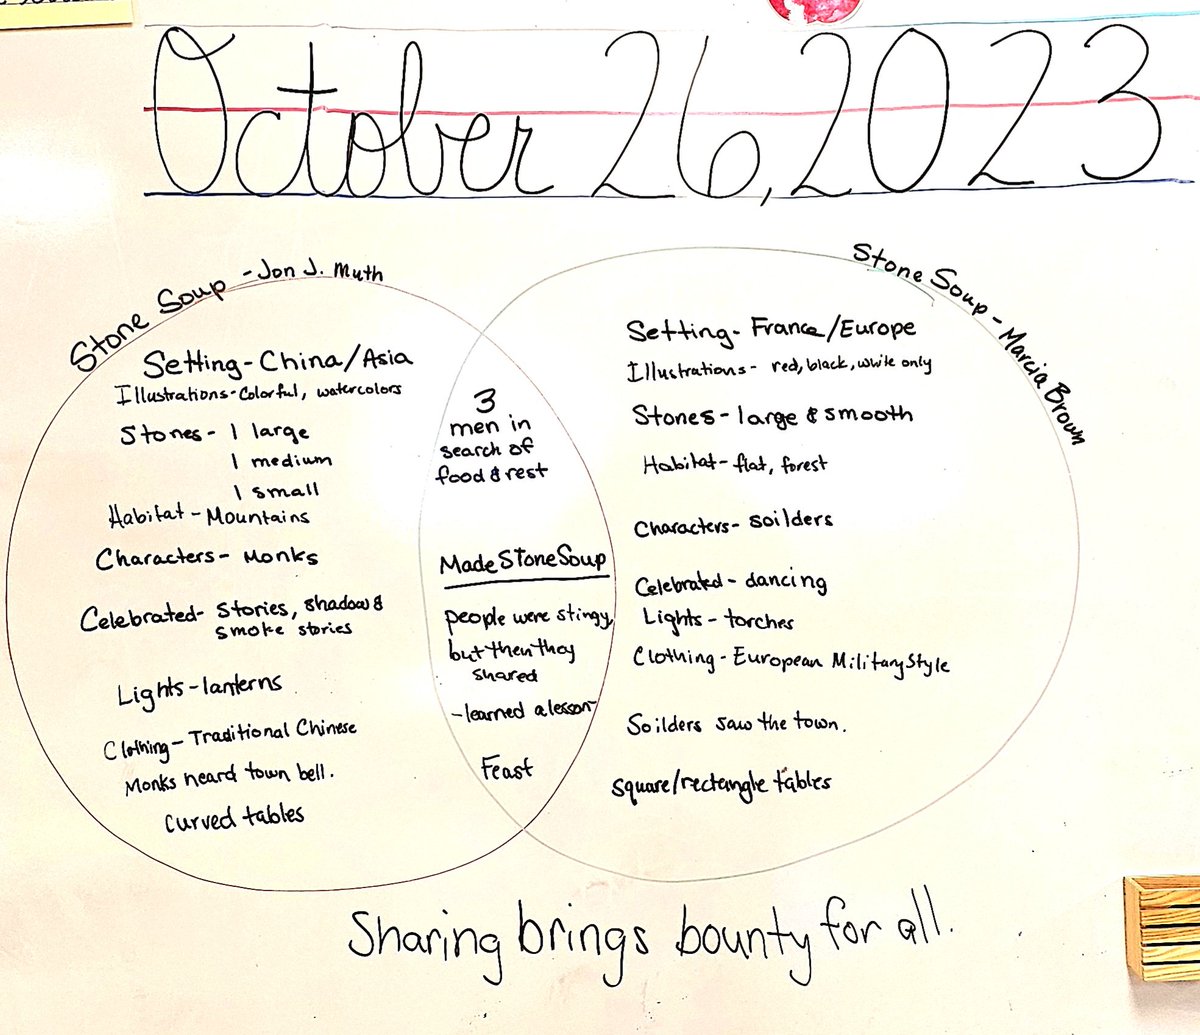 October 26, 2023
Stone Soup - Jon J. Muth
Setting - China/Asia
Illustrations - Colorful, watercolors
Stones - 1 large
1 medium
1 small
Habitat - Mountains
Characters - Monks
Celebrated - Stories, shadow &
smoke stories
Lights - lanterns
Clothing - Traditional Chinese
Monks heard town bell.
curved tables
3
men in
search of
food & rest
Made Stone Soup
people were stingy,
but then they
shared
- learned a lesson -
Feast
Stone Soup - Marcia Brown
Setting - France/Europe
Illustrations - red, black, white only
Stones - large & smooth
Habitat - flat, forest
Characters - Soilders
Celebrated - dancing
Lights - torches
Clothing - European Military Style
Soilders saw the town.
square/rectangle tables
Sharing brings bounty for all.